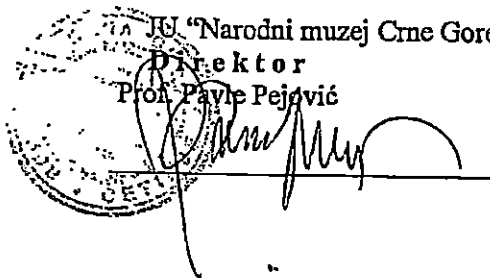 JU “Narodni muzej Crne Gore
Direktor
Prof. Pavle Pejović